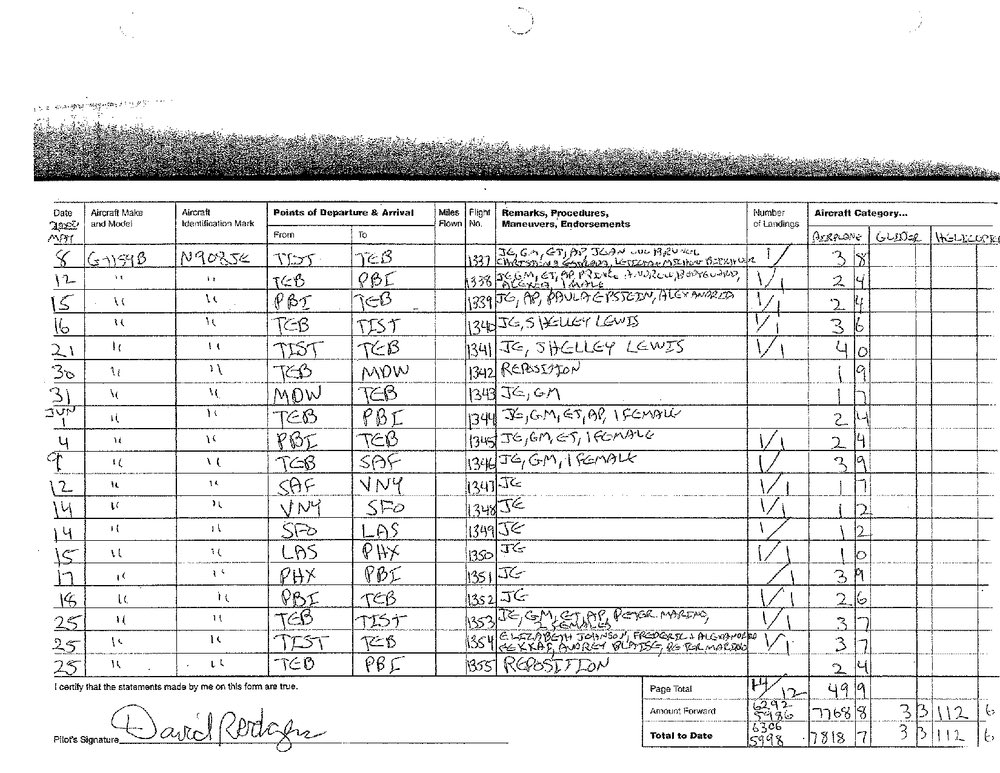 Date Aircraft Make and Model Aircraft Identification Mark Points of Departure & Arrival From To Miles Flown Flight No. Remarks, Procedures, Maneuvers, Endorsements Number of Landings Aircraft Category...
MAY AIRPLANE GLIDER HELICOPTER
8 G-1159B N908JE TIST TEB 1337 JE, GM, ET, AP, JEAN 1/ 3 8
12 " " TEB PBI 1338 JE, GM, ET, AP, PRINCE ANDREW, BODYGUARD, 1 MALE 1/1 2 4
15 " " PBI TEB 1339 JE, AP, PAULA EPSTEIN, 1/1 2 4
16 " " TEB TIST 1340 JE, SHELLEY LEWIS 1/1 3 6
21 " " TIST TEB 1341 JE, SHELLEY LEWIS 1/1 4 0
30 " " TEB MDW 1342 REPOSITION 1 9
31 " " MDW TEB 1343 JE, GM 1 7
JUN 1 " " TEB PBI 1344 JE, GM, ET, AP, 1 FEMALE 2 4
4 " " PBI TEB 1345 JE, GM, ET, 1 FEMALE 1/1 2 4
9 " " TEB SAF 1346 JE, GM, 1 FEMALE 1/ 3 9
12 " " SAF VNY 1347 JE 1/1 1 7
14 " " VNY SFO 1348 JE 1/1 1 2
14 " " SFO LAS 1349 JE 1/ 1 2
15 " " LAS PHX 1350 JE 1/1 1 0
17 " " PHX PBI 1351 JE /1 3 9
18 " " PBI TEB 1352 JE 1/1 2 6
25 " " TEB TIST 1353 JE, GM, ET, AP, PETER MARINO, 2 FEMALES 1/1 3 7
25 " " TIST TEB 1354 ELIZABETH JOHNSON, PETER MARINO 1/1 3 7
25 " " TEB PBI 1355 REPOSITION 2 4
I certify that the statements made by me on this form are true. Page Total 14/12 49 9
Amount Forward 6292 5986 7768 8 3 3 112 6
Pilot's Signature David Rodgers Total to Date 6306 5998 7818 7 3 3 112 6